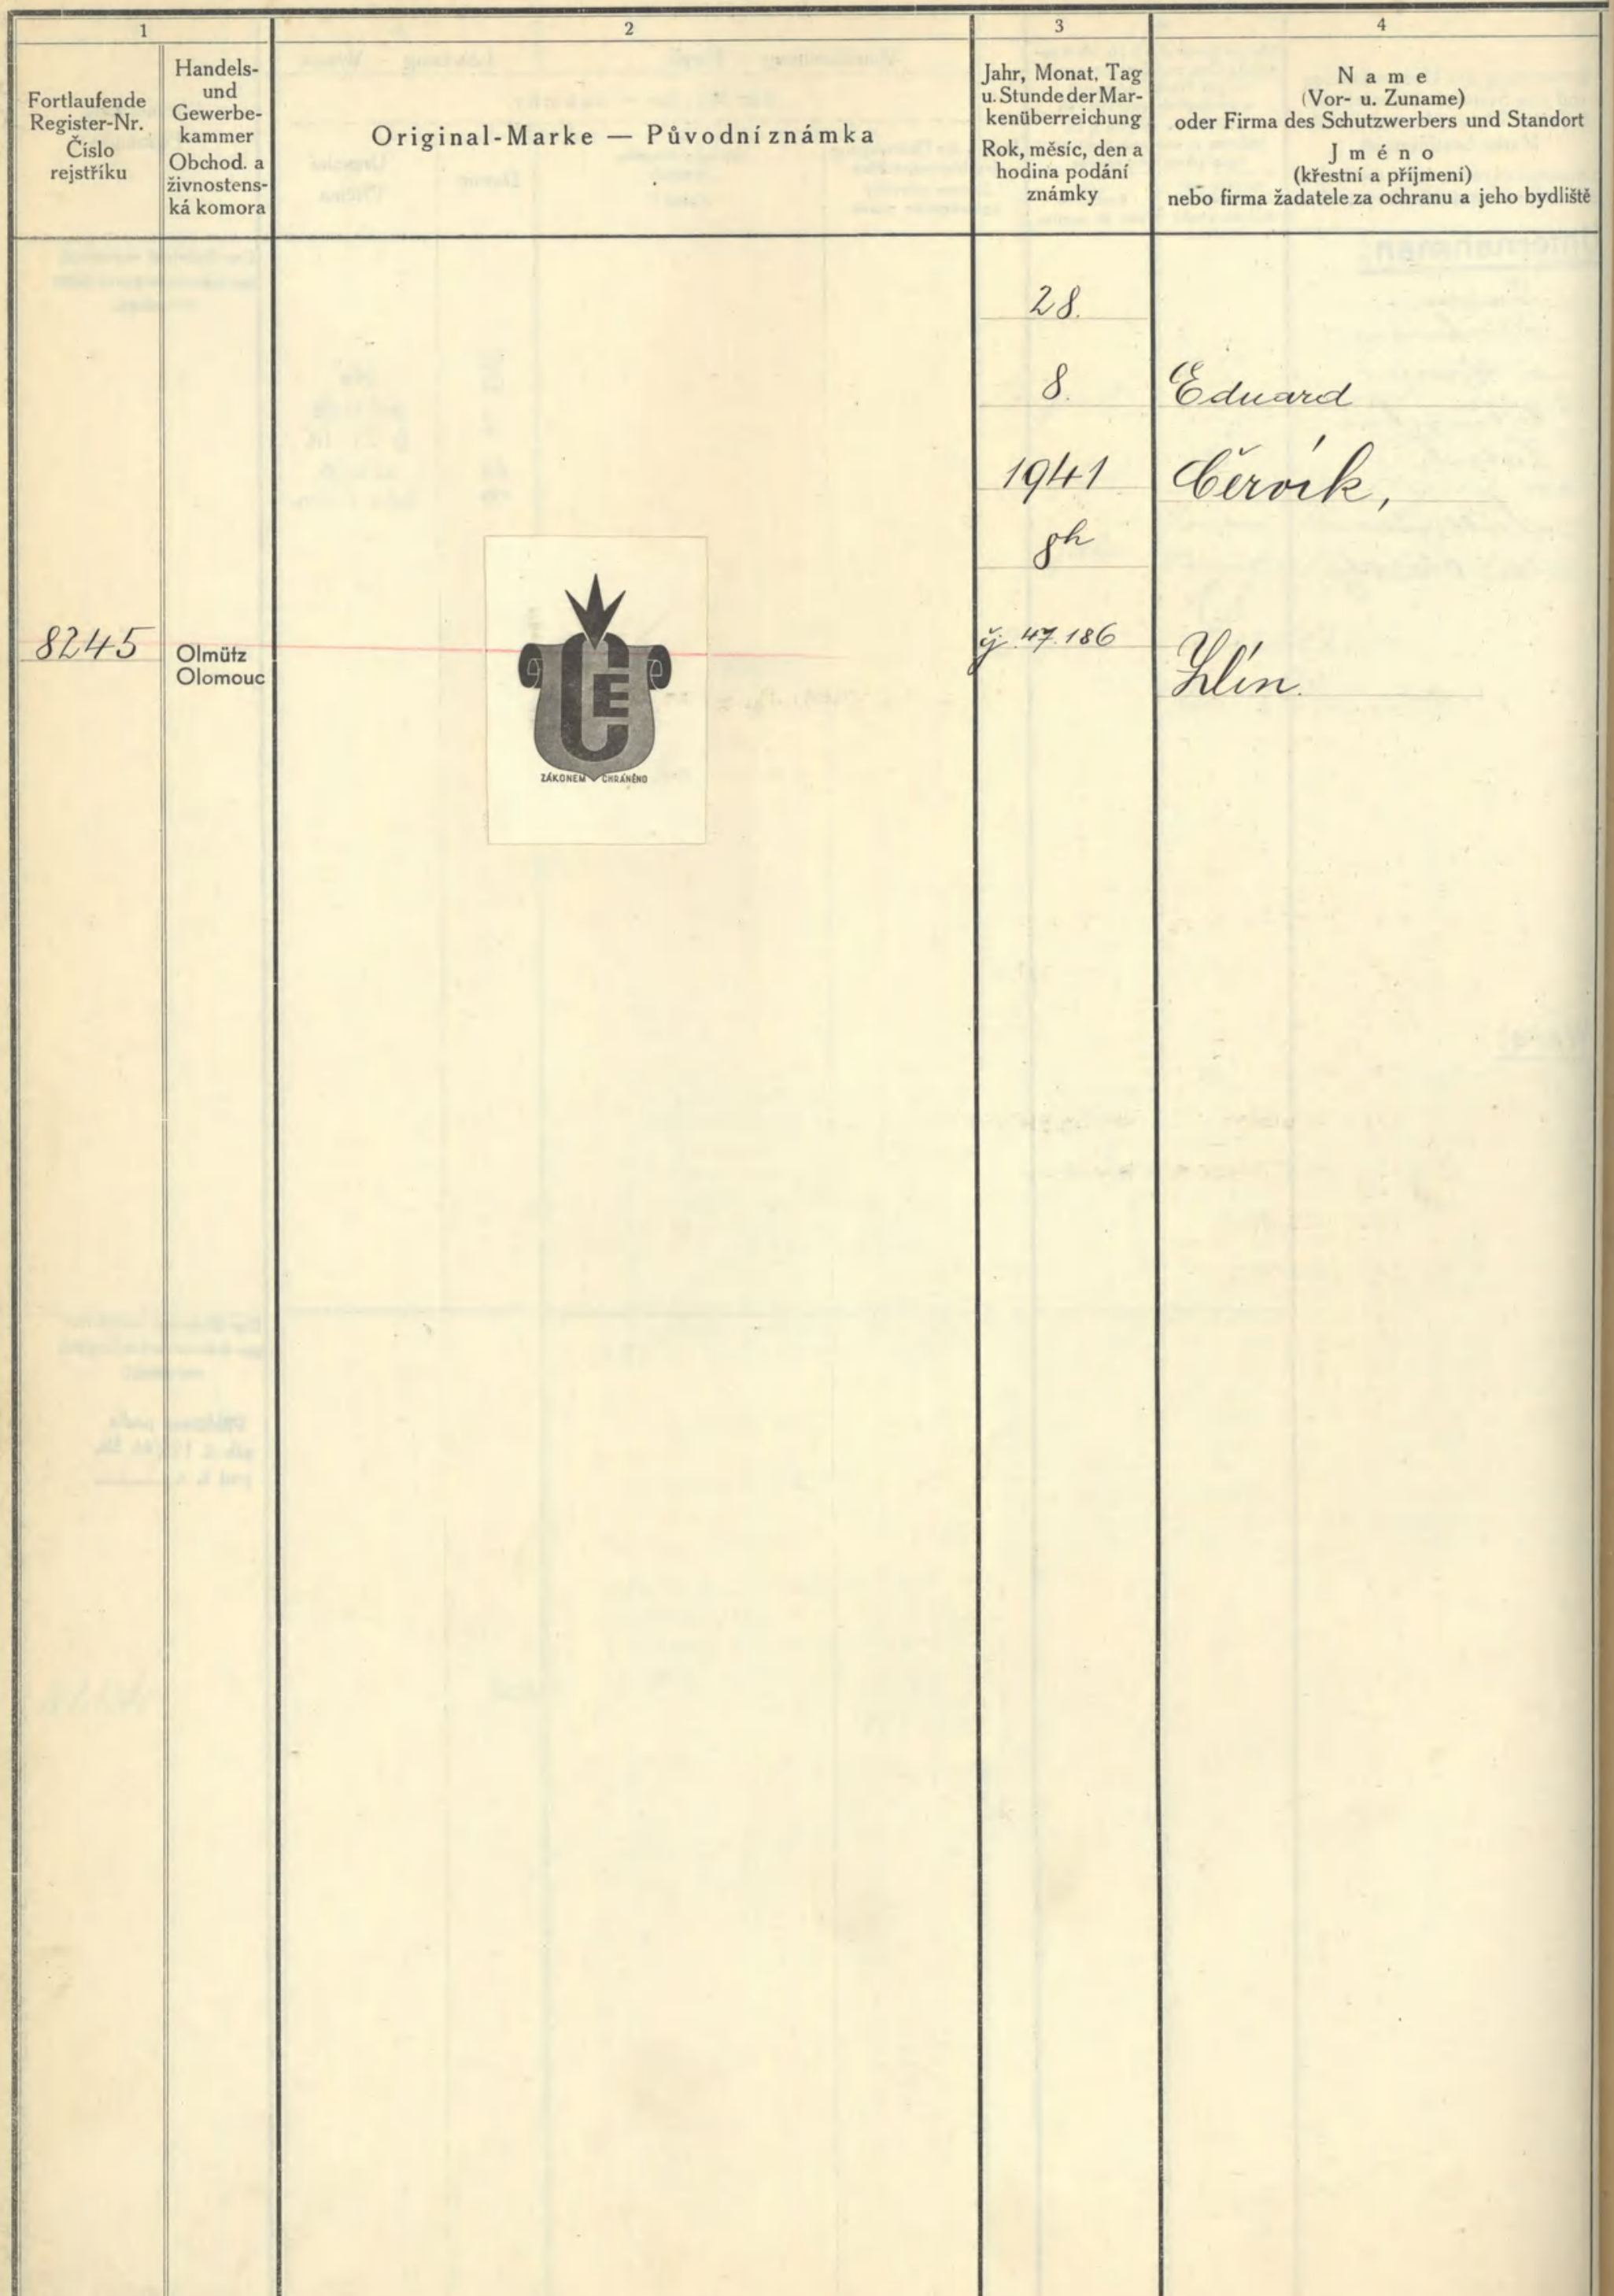 1
2
3
4
Fortlaufende
Register-Nr.
Číslo
rejstříku
Handels-
und
Gewerbe-
kammer
Obchod. a
živnostens-
ká komora
Original-Marke — Původní známka
Jahr, Monat, Tag
u. Stunde der Mar-
kenüberreichung
Rok, měsíc, den a
hodina podání
známky
Name
(Vor- u. Zuname)
oder Firma des Schutzwerbers und Standort
Jméno
(křestní a příjmení)
nebo firma žadatele za ochranu a jeho bydliště
28.
8.
1941
8h
čj. 47.186
Eduard
Červík,
Zlín.
8245
Olmütz
Olomouc
CE
ZÁKONEM CHRÁNĚNO